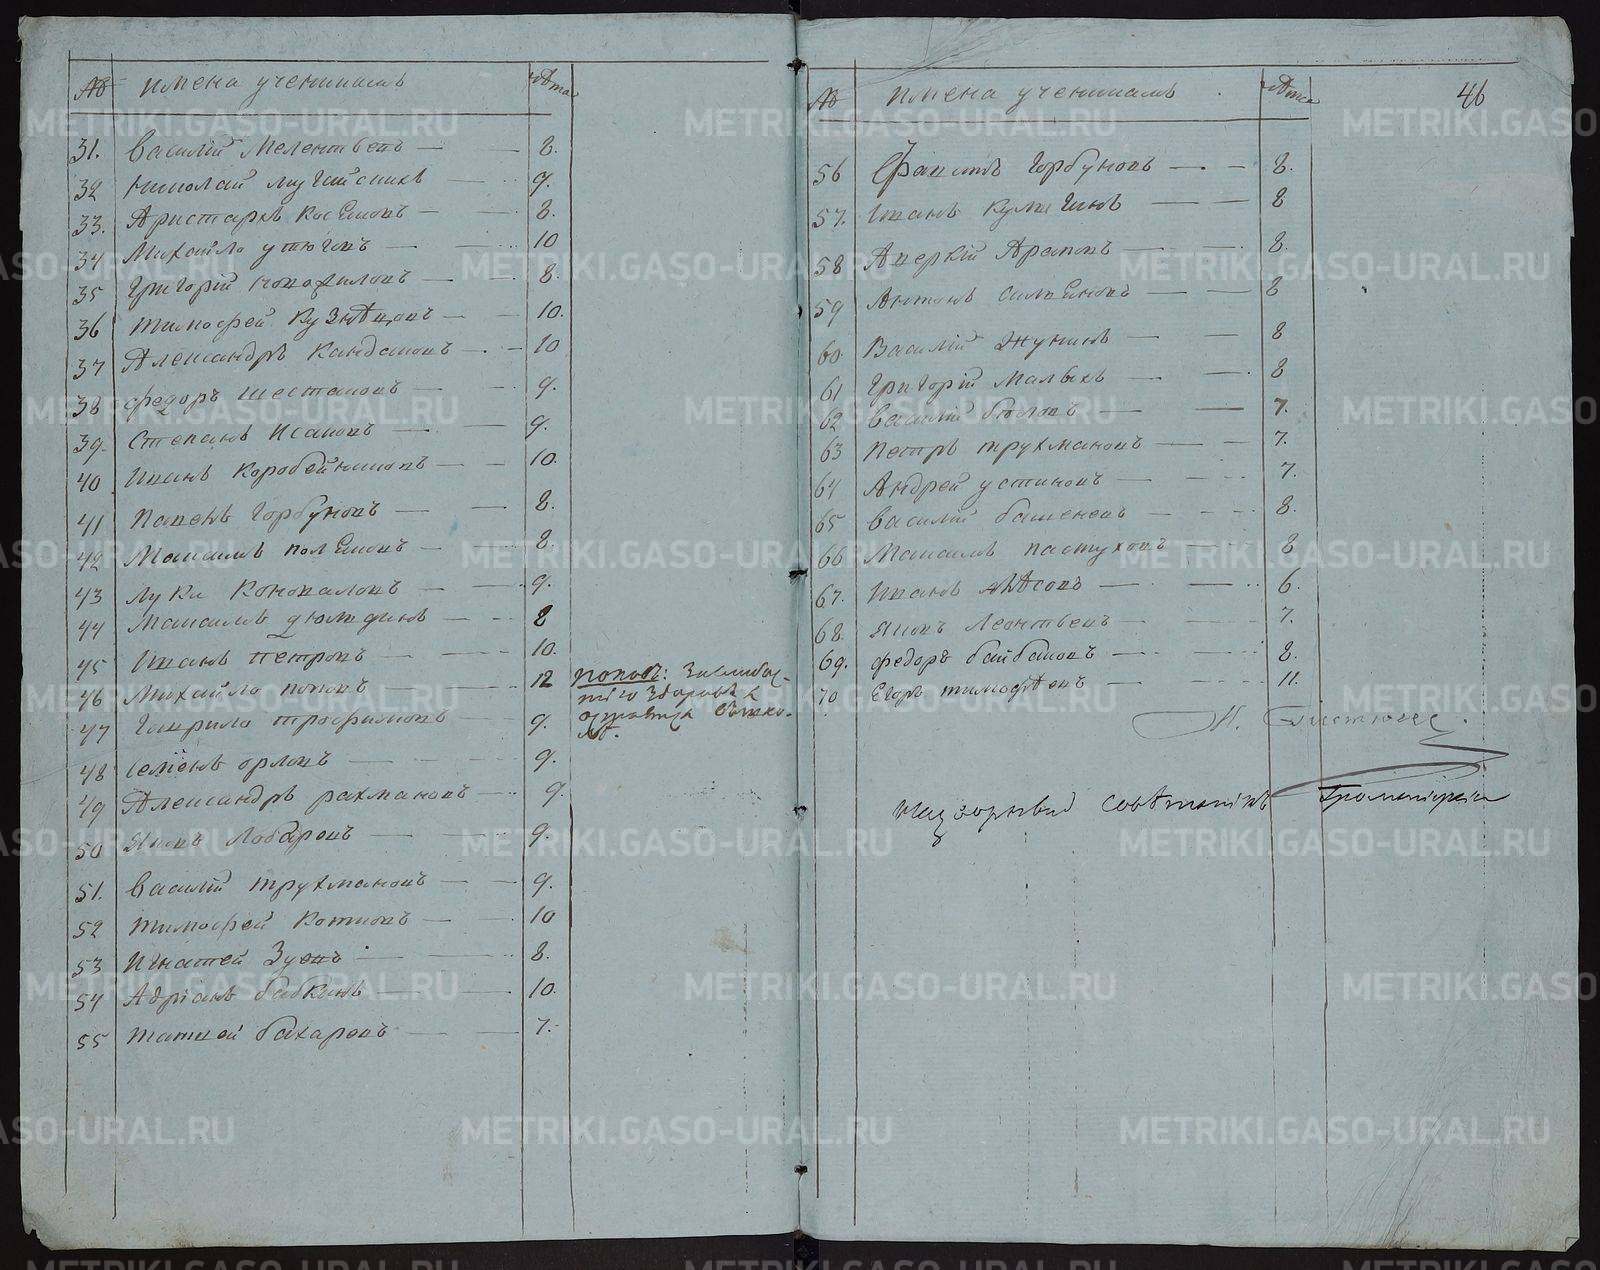 № имена учениковъ лѣта
31. Василій Мелентьевъ 8.
32 Николай Лугайскихъ 9.
33. Аристархъ Косѣновъ 8.
34 Михайло Утюговъ 10
35 Григорій Коновиловъ 8.
36 Тимофей Кузнѣцовъ 10.
37 Александръ Кандаковъ 10
38 Федоръ Шестаковъ 9.
39. Степанъ Исаковъ 9.
40 Иванъ Коробейниковъ 10.
41 Павелъ Горбуновъ 8.
42 Максимъ Полѣновъ 8.
43 Лука Коноваловъ 9.
44 Максимъ Дюлидинъ 8
45 Иванъ Петровъ 10.
46 Михайло Поповъ 12 Поповъ: За слабос-
тію здоровья
оставленъ въ шко-
лѣ.
47 Гаврило Трофимовъ 9.
48 Семенъ Орловъ 9.
49 Александръ Рахмановъ 9.
50 Яковъ Лобаревъ 9.
51. Василій Трухмановъ 9.
52 Тимофей Котковъ 10
53 Игнатей Зуевъ 8.
54 Адріанъ Бабкинъ 10.
55 Матвей Бахаревъ 7.
46
№ имена учениковъ лѣта
56 Горбуновъ 8.
57. Иванъ Кулигинъ 8
58 Аверкій Араповъ 8.
59 Антонъ 8
60. Василій Жукинъ 8
61 Григорій Малыхъ 8
62 Василій Бѣловъ 7.
63 Петръ Трухмановъ 7.
64 Андрей Устиновъ 7.
65 Василій 8.
66 Максимъ Пастуховъ 8
67. Иванъ 6.
68. Яковъ Леонтьевъ 7.
69. Федоръ Байбаковъ 8.
70 Егоръ Тимофѣевъ 11.
Надворный совѣтникъ